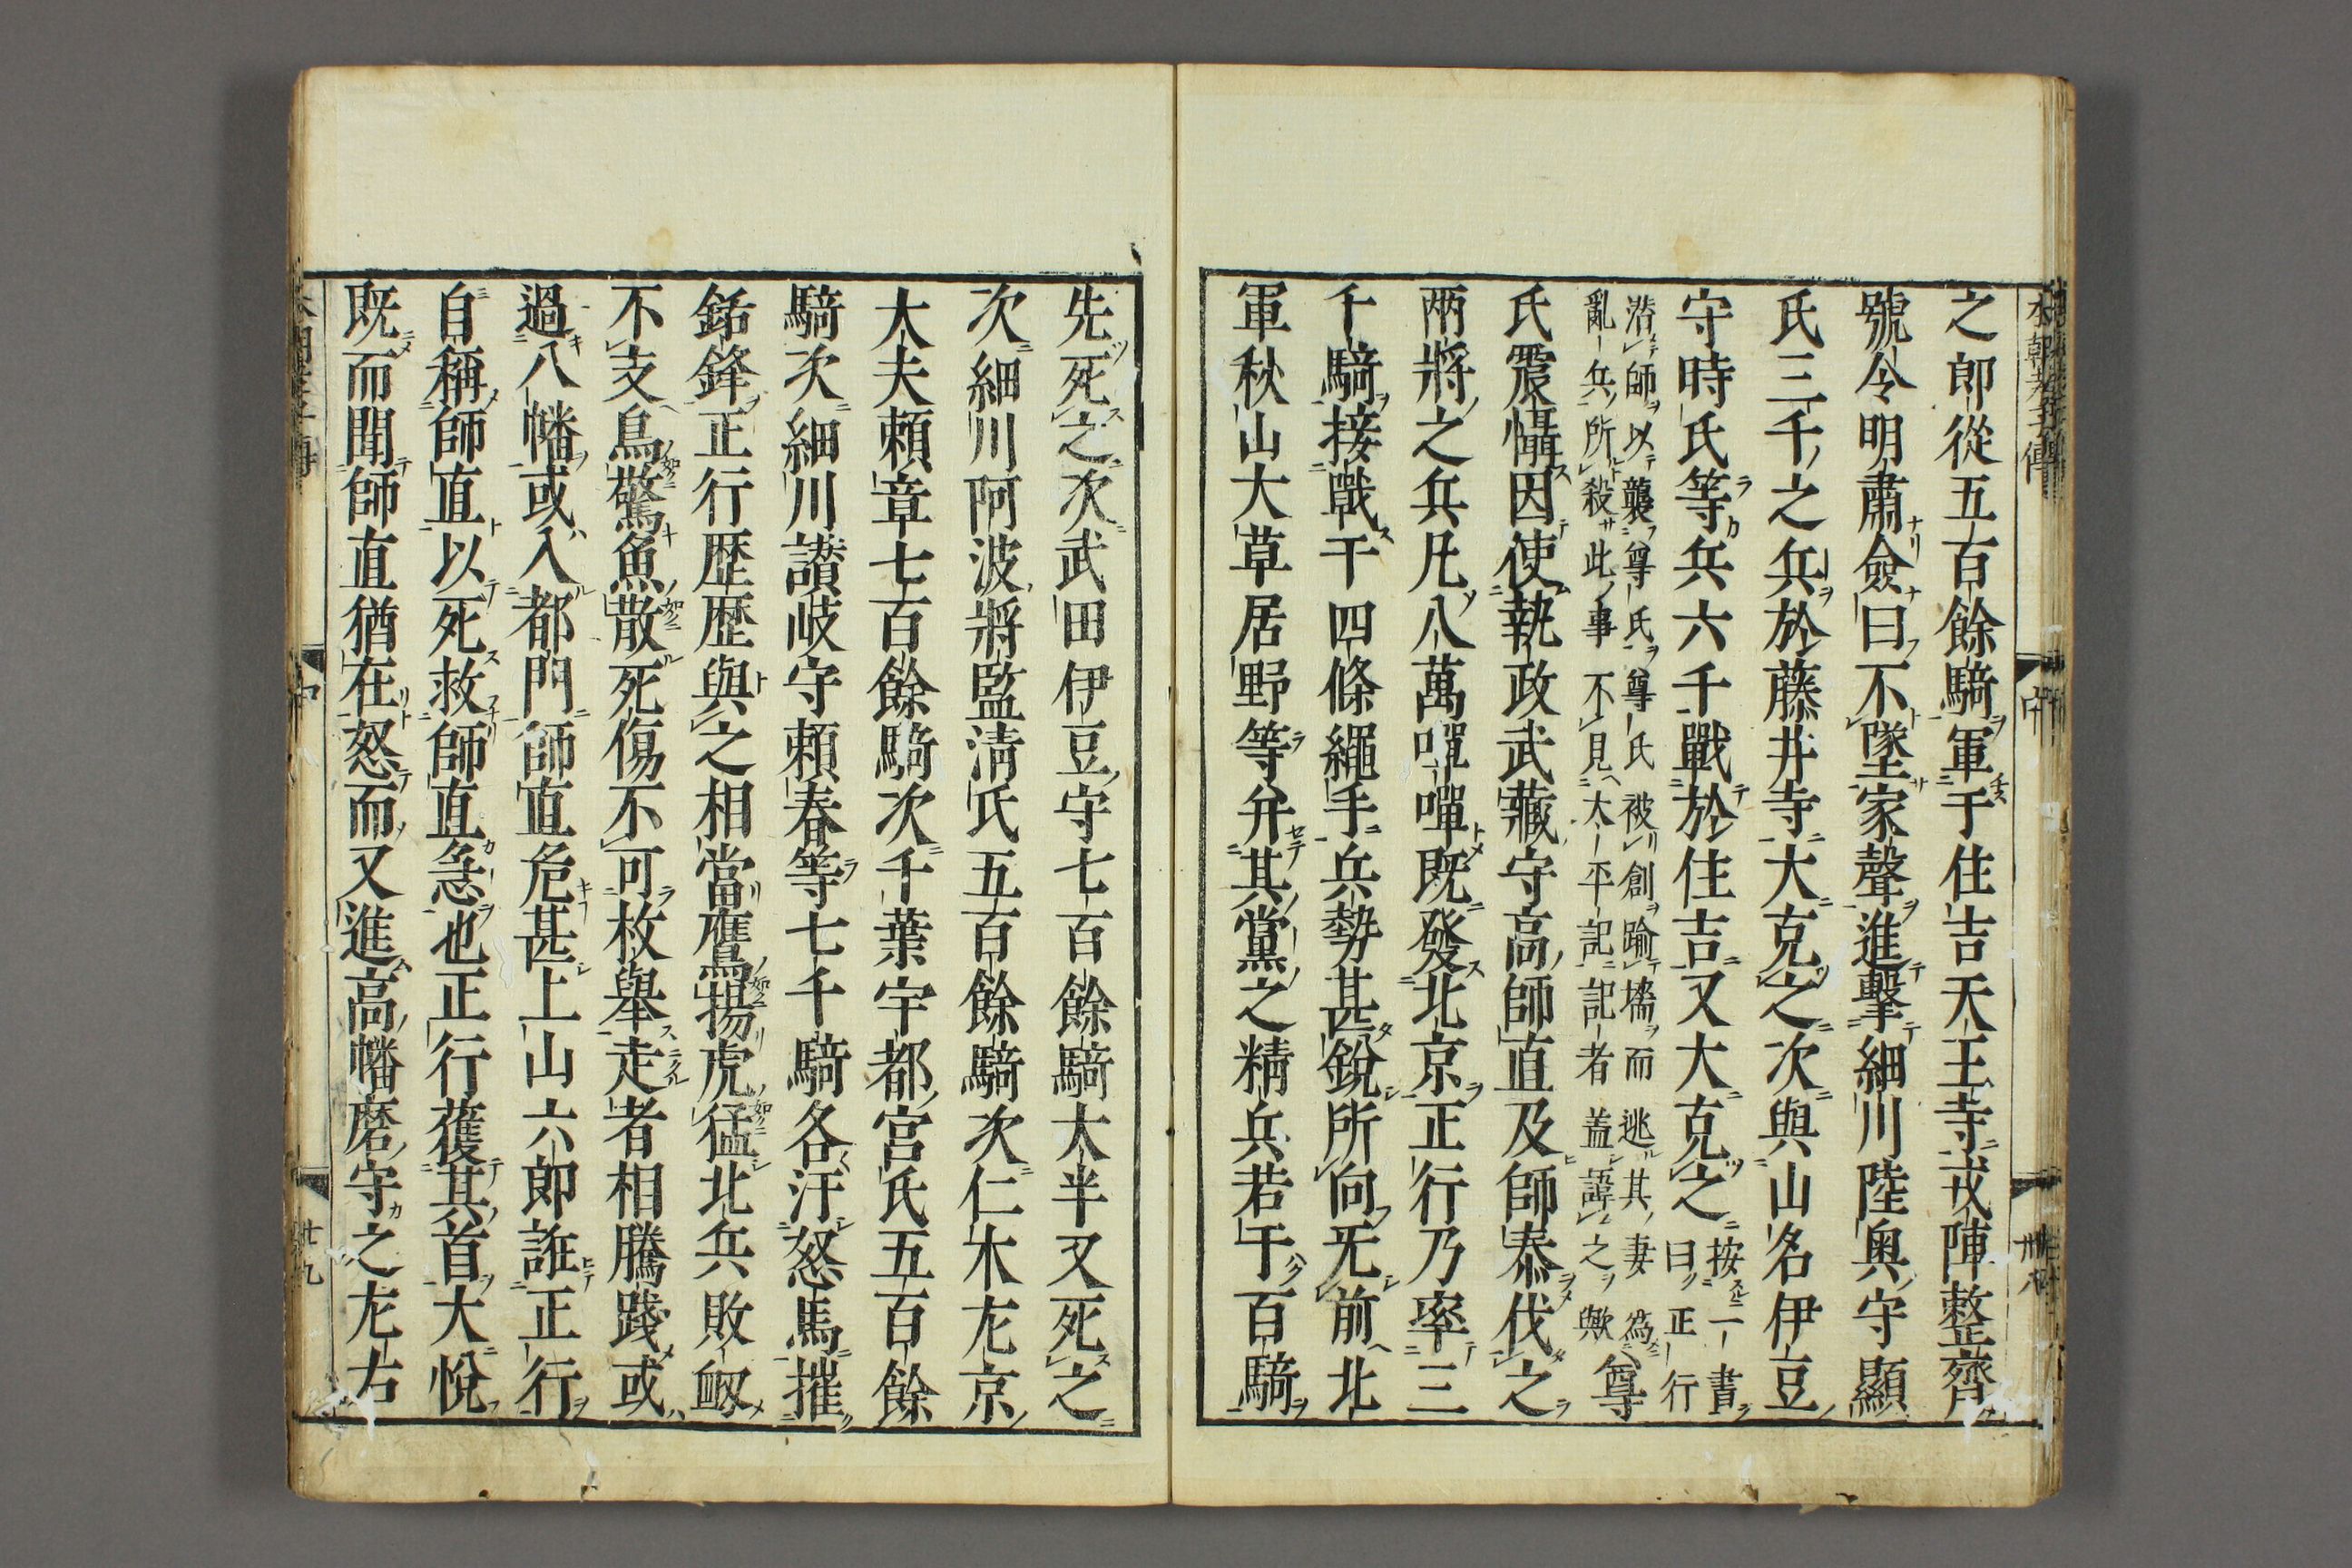 之郎從五百餘騎軍于住吉天王寺戎陣整齊
號令明肅僉曰不墜家聲進擊細川陸奥守顯
氏三千之兵於藤井寺大克之次與山名伊豆
守時氏等兵六千戰於住吉又大克之
按一書
曰正行
潜師以襲尊氏尊氏被創踰墻而逃其妻為尊
亂兵所殺此事不見太平記記者盖諱之歟
氏震懾因使執政武藏守高師直及師泰伐之
兩將之兵凡八萬嘽嘽既發北京正行乃率三
千騎接戰于四條繩手兵勢甚銳所向无前北
軍秋山大草居野等并其黨之精兵若干百騎
先死之次武田伊豆守七百餘騎太半又死之
次細川阿波將監淸氏五百餘騎次仁木左京
大夫頼章七百餘騎次千葉宇都宮氏五百餘
騎次細川讃岐守頼春等七千騎各汗怒馬摧
銛鋒正行歴歴與之相當鷹揚虎猛北兵敗衂
不支鳥驚魚散死傷不可枚舉走者相騰踐或
過八幡或入都門師直危甚上山六郎誑正行
自稱師直以死救師直急也正行獲其首大悅
既而聞師直猶在怒而又進高幡磨守之左右
本朝孝子傳
中
廿九